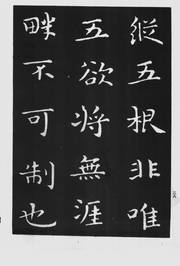 縱五根非唯
五欲将無涯
畔不可制也